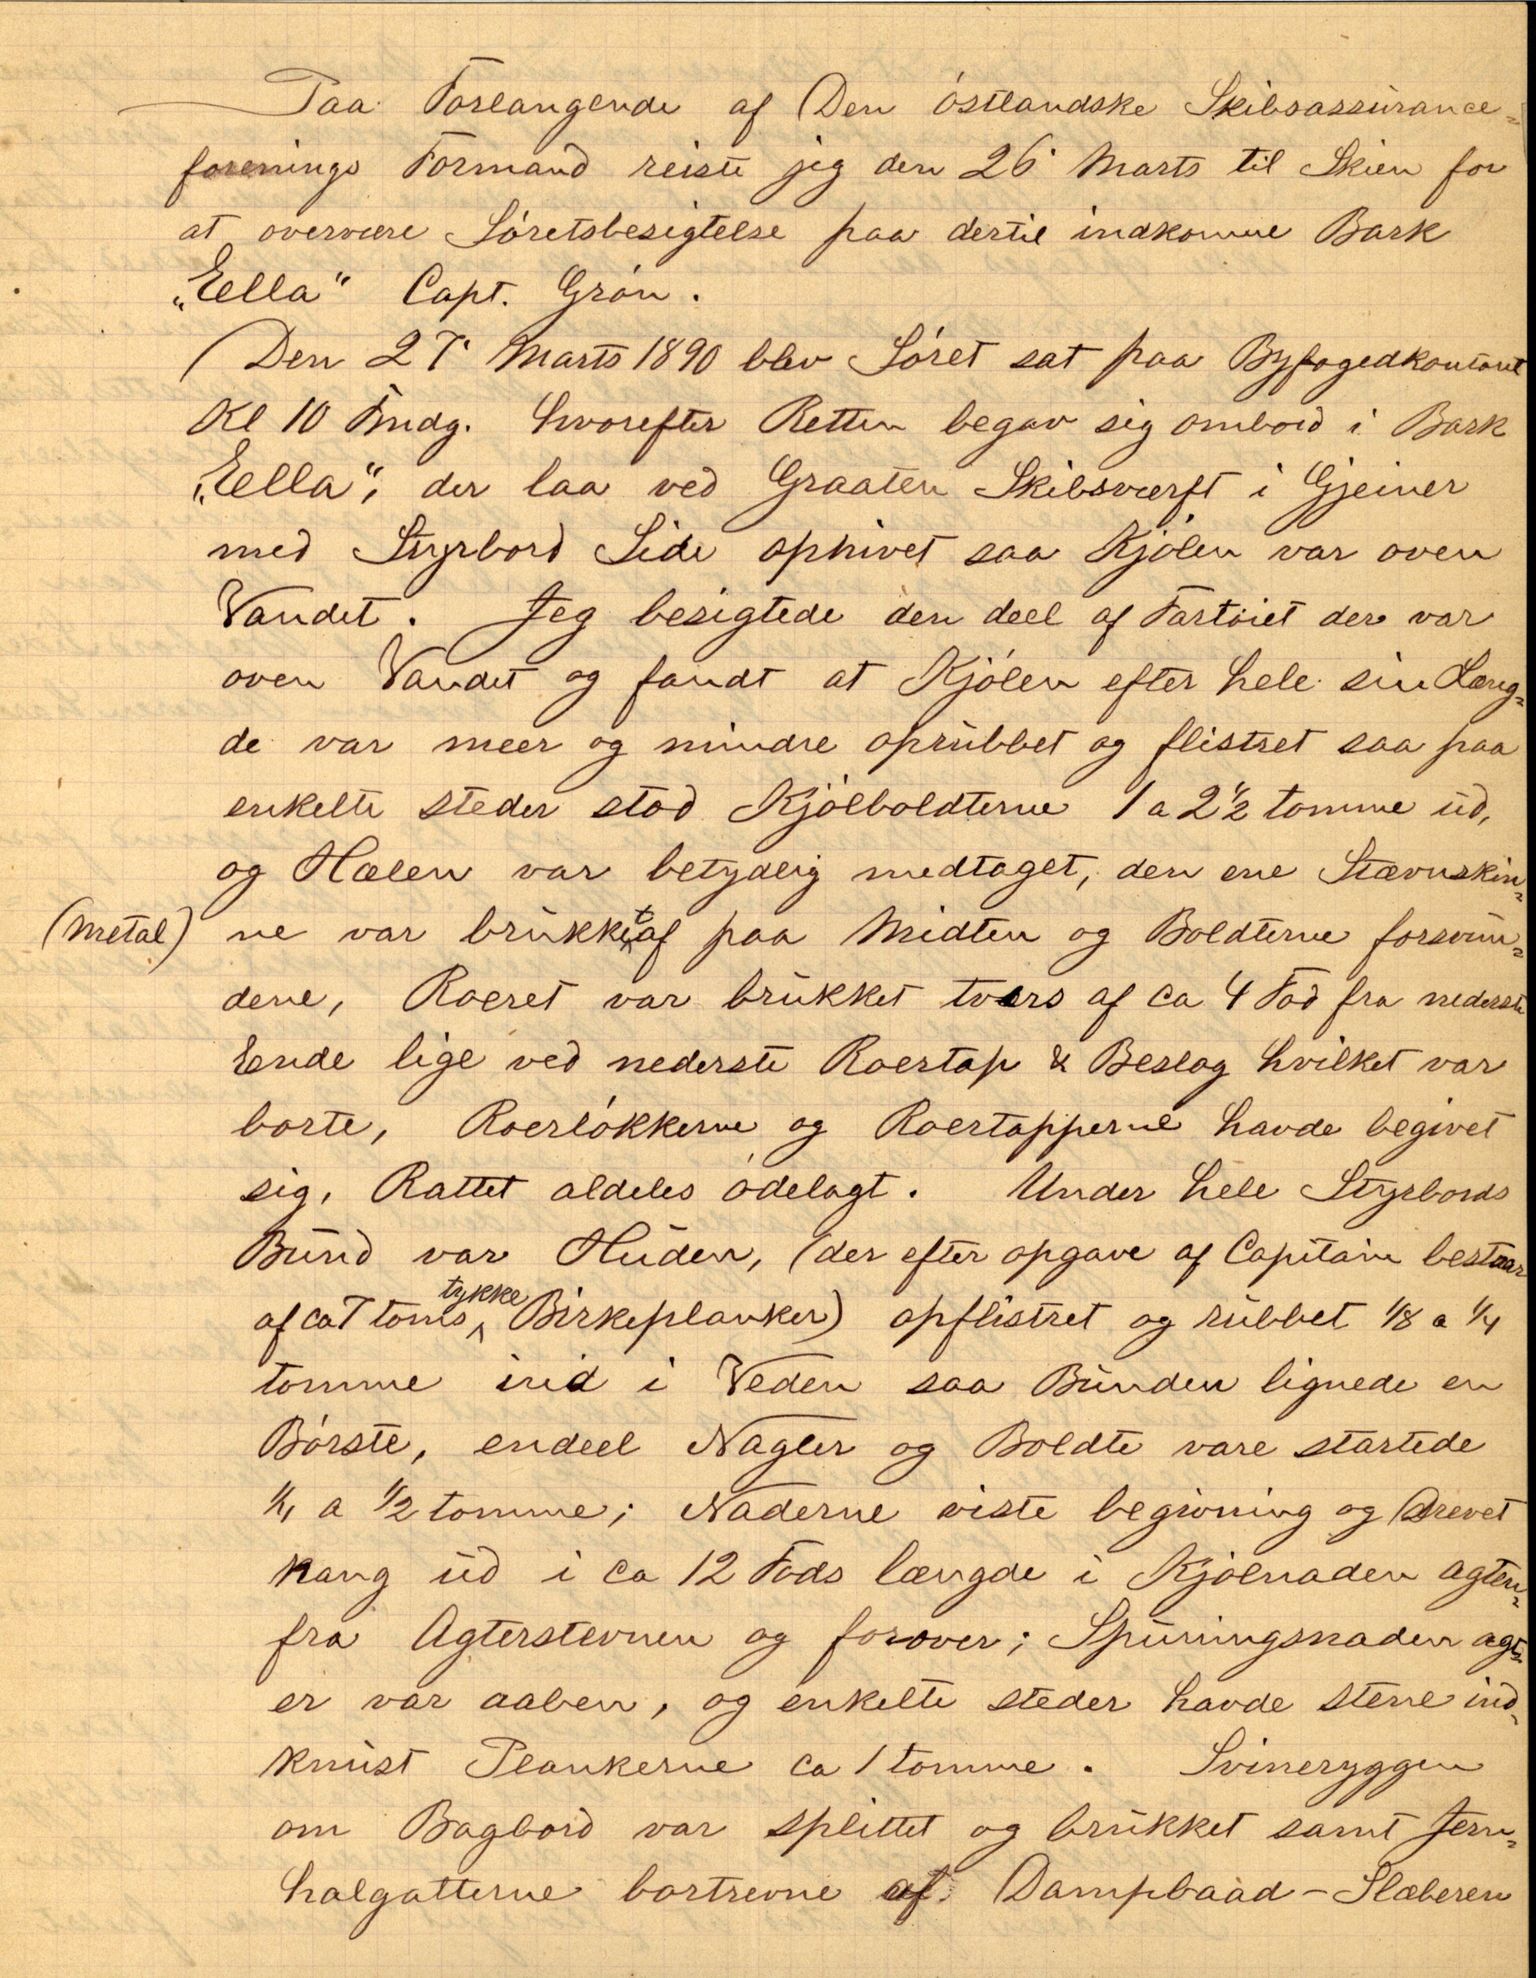 Paa Forlangende af Den östlandske Skibsassurance=
forenings Formand reiste jeg den 26' Marts til Skien for
at overvære Söretsbesigtelse paa dertil indkomne Bark
„Ella“ Capt. Grön.
Den 27' Marts 1890 blev Söret sat paa Byfogedkontoret
Kl 10 Fmdg. hvorefter Retten begav sig ombord i Bark
„Ella“, der laa ved Graaten Skibsværft i Gjeiner
med Styrbord Side ophivet saa Kjölen var oven
Vandet. Jeg besigtede den deel af Fartöiet der var
oven Vandet og fandt at Kjölen efter hele sin Læng=
de var meer og mindre oprubbet og flistret saa paa
enkelte steder stod Kjölboldterne 1 a 2 1/2 tomme ud,
og Hælen var betydelig medtaget, den ene Stævnskin=
(Metal) ne var brukket af paa Midten og Boldterne forsvun=
dene, Roeret var brukket tvers af ca 4 Fod fra nederste
Ende lige ved nederste Roertap & Beslag hvilket var
borte, Roerlökkerne og Roertapperne havde begivet
sig, Rattet aldeles ödelagt. Under hele Styrbords
Bund var Huden, (der efter opgave af Capitain bestaar
af ca 7 toms tykke Birkeplanker) opflistret og rubbet 1/8 a 1/4
tomme ind i Veden saa Bunden lignede en
Börste, endeel Nagler og Boldte vare startede
1/4 a 1/2 tomme; Naderne viste begivning og Drevet
hang ud i ca 12 Fods længde i Kjölnaden agten=
fra Agterstevnen og forover; Spuningsnaden agt=
er var aaben, og enkelte steder havde stene ind=
knust Plankerne ca 1 tomme. Svineryggen
om Bagbord var splittet og brukket samt Jern=
halgatterne bortrevne af Dampbaad-Slæberen